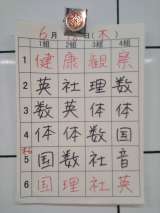 6月 日(木)
1組 2組 3組 4組
1 健 康 観 察
2 英 社 理 数
3 数 英 体 体
4 体 体 数 国
5 国 数 社 音
6 国 理 社 英